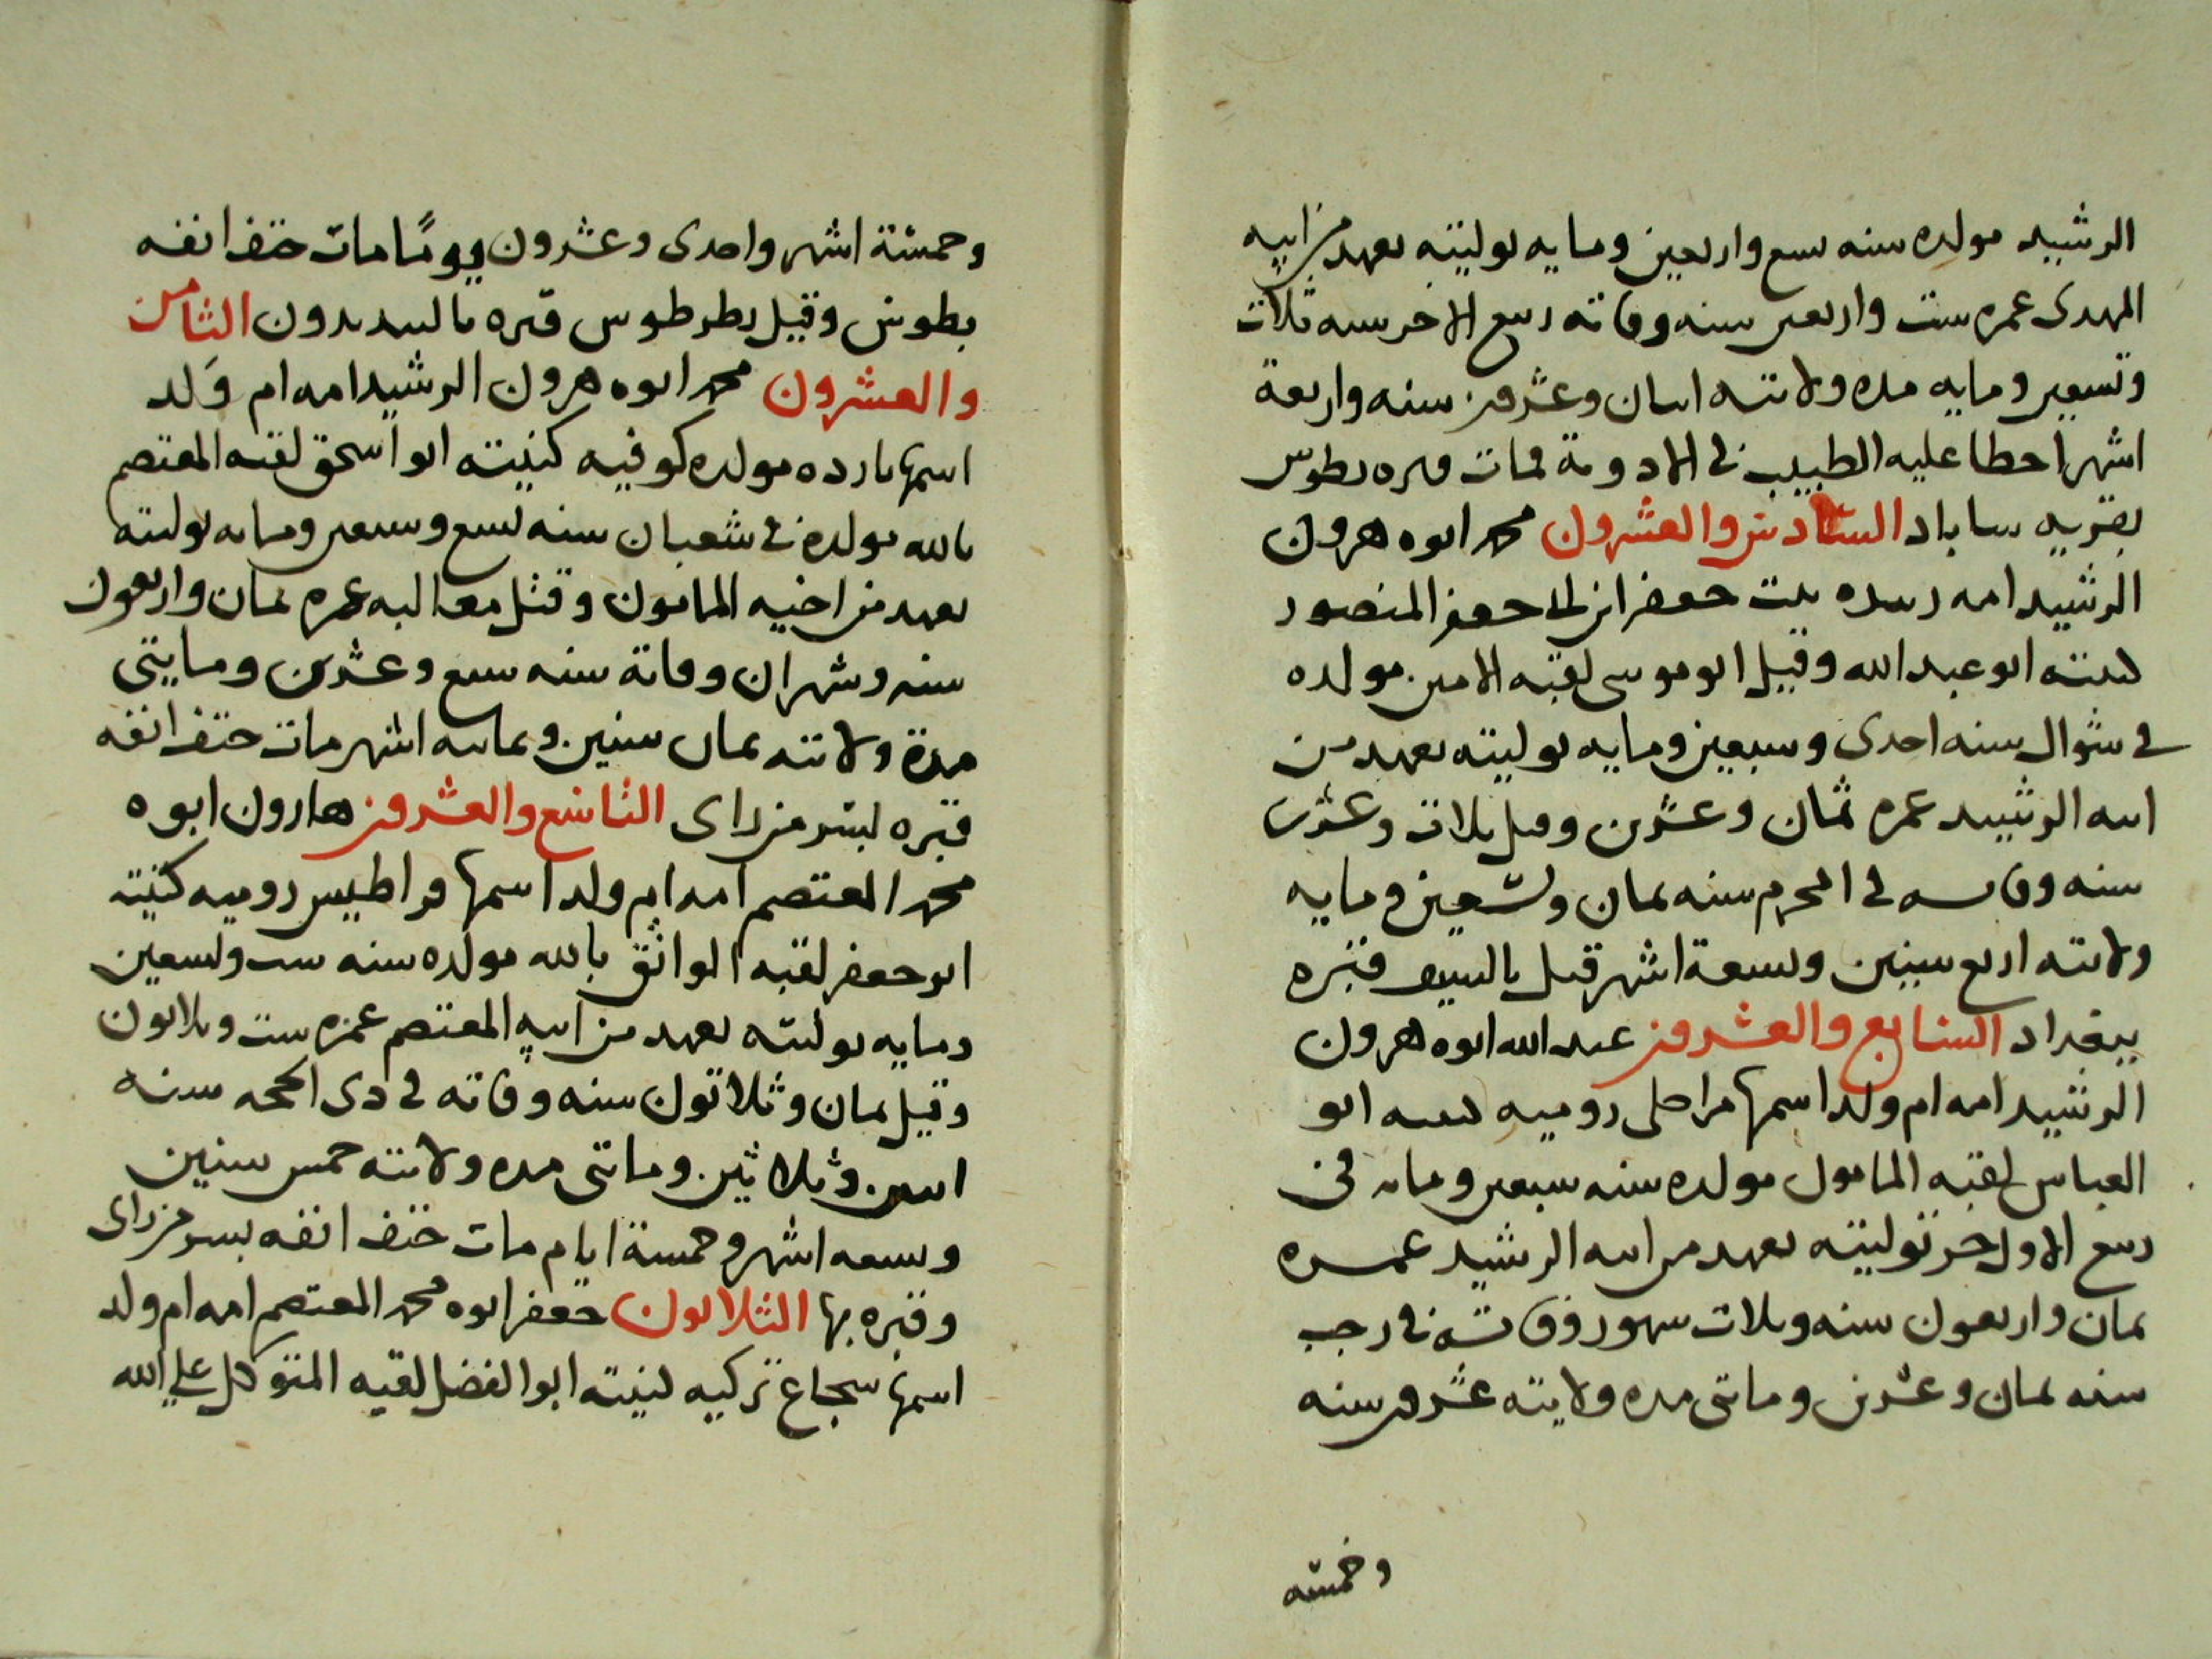 الرشيد مولده سنه سبع واربعين ومايه توليته بعهد من ابيه
المهدى عمره ست واربعين سنه وفاته ربيع الاخر سنه ثلاث
وتسعين ومايه مده ولايته اثنان وعشرون سنه واربعة
اشهر اخطا عليه الطبيب فى الادوية فمات وقبره بطوس
بقريه ساباد السادس والعشرون محمد ابوه هرون
الرشيد امه زبيده بنت جعفر ابن ابى جعفر المنصور
كنيته ابو عبد الله وقيل ابو موسى لقبه الامين مولده
فى شوال سنه احدى وسبعين ومايه توليته بعهد من
ابيه الرشيد عمره ثمان وعشرين وقيل ثلاث وعشرين
سنه وفاته فى المحرم سنه ثمان وتسعين ومايه
ولايته اربع سنين وتسعة اشهر قتل بالسيف قبره
ببغداد السابع والعشرون عبد الله ابوه هرون
الرشيد امه ام ولد اسمها مراجل روميه كنيته ابو
العباس لقبه المامون مولده سنه سبعين ومايه فى
ربيع الاول توليته بعهد من ابيه الرشيد عمره
ثمان واربعون سنه وثلاث شهور وفاته فى رجب
سنه ثمان وعشرين وماتى مده ولايته عشرون سنه
وخمسه
وخمسة اشهر واحدى وعشرون يومًا مات حتف انفه
بطوس وقيل بطرطوس قبره بالبديدون الثامن
والعشرون محمد ابوه هرون الرشيد امه ام وَلد
اسمها مارده مولده كوفيه كنيته ابو اسحق لقبه المعتصم
بالله مولده فى شعبان سنه تسع وسبعين ومايه توليته
بعهد من اخيه المامون وقيل مغالبه عمره ثمان واربعون
سنه وشهران وفاته سنه سبع وعشرين ومايتى
مدة ولايته ثمان سنين وثمانيه اشهر مات حتف انفه
قبره بسر من راى التاسع والعشرون هارون ابوه
محمد المعتصم امه ام ولد اسمها قراطيس روميه كنيته
ابو جعفر لقبه الواثق بالله مولده سنه ست وتسعين
ومايه توليته بعهد من ابيه المعتصم عمره ست وثلاثون
وقيل ثمان وثلاثون سنه وفاته فى ذى الحجه سنه
اثنين وثلاثين وماتى مده ولايته خمس سنين
وتسعه اشهر وخمسة ايام مات حتف انفه بسر من راى
وقبره بها الثلاثون جعفر ابوه محمد المعتصم امه ام ولد
اسمها شجاع تركيه كنيته ابو الفضل لقبه المتوكل على الله